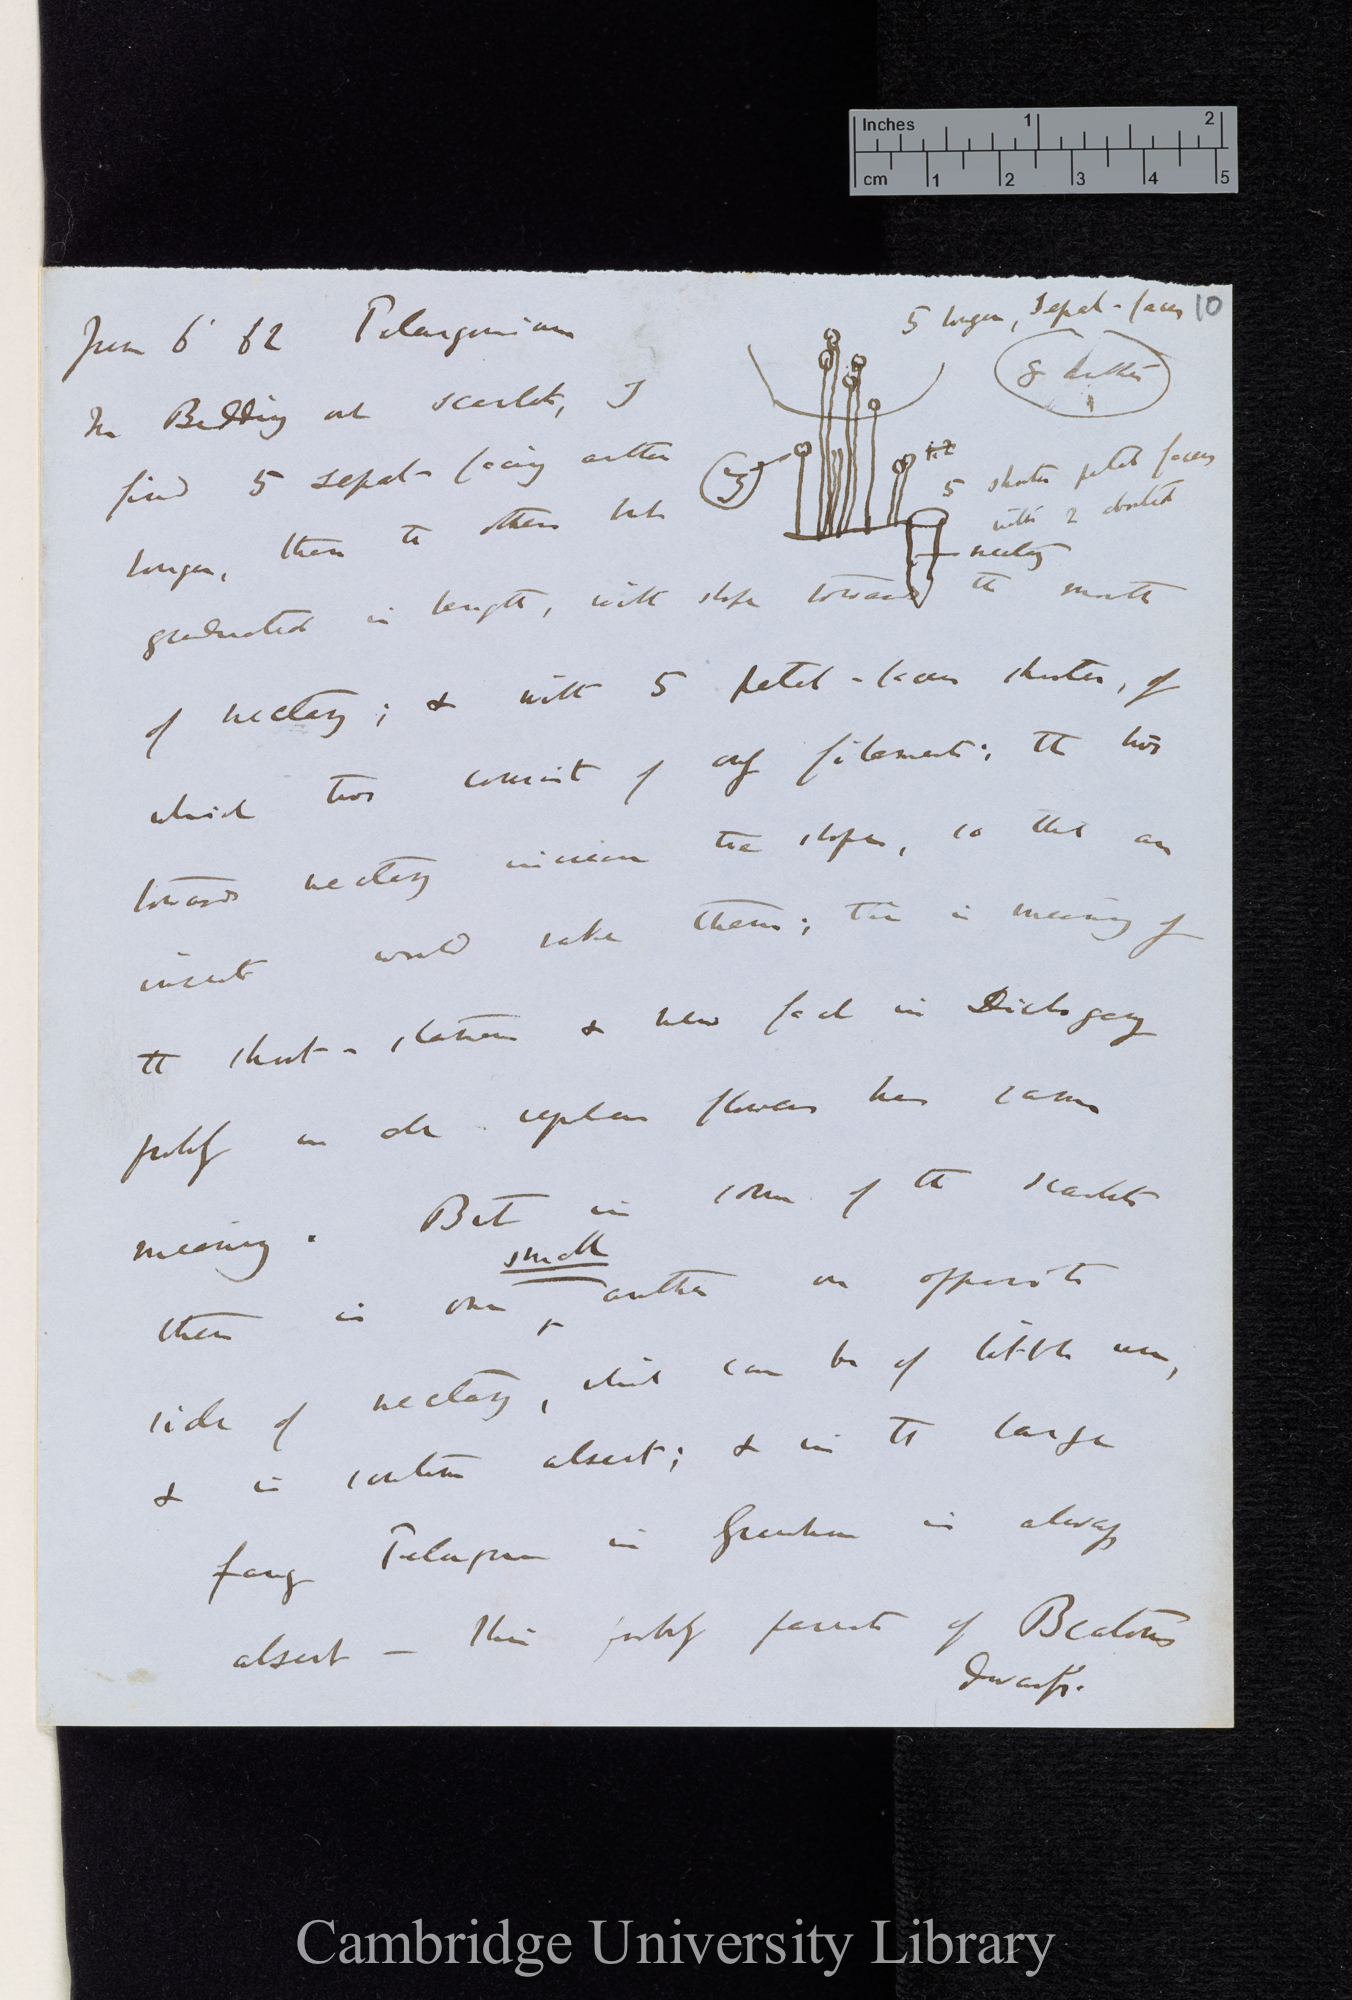 10
June 6' 62 Pelargonium
5 longer, Sepal-faces
8 anthers
In Bedding out scarlets, I
find 5 sepal-facing anthers
longer, then the others but
5 shorter petal faces
with 2 aborted
nectary
graduated in length, with slope towards the mouth
of nectary; & with 5 petal-faces shorter, of
which two consist of only filaments; the two
towards nectary increase the slope, so that an
insect would rake them; this is meaning of
the short-stamens & new fact in Dichogamy
probly in de regular flowers has same
meaning. But in some of the scarlets
small
there is one anther on opposite
side of nectary, which can be of little use,
& is sometimes absent; & in the large
fancy Pelargonium in Greenhouse is always
absent — This probly parents of Beatons
dwarfs.
Inches 1 2
cm 1 2 3 4 5
Cambridge University Library